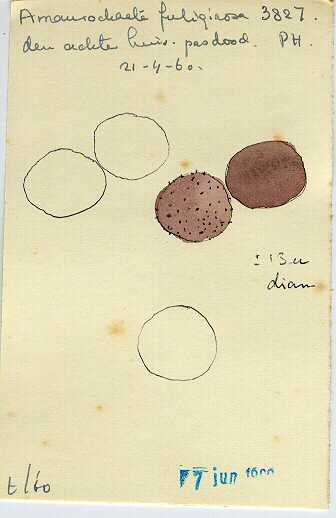 Amaurochaete fuliginosa 3827.
den achter huis. pas dood. PH.
21-4-60.
± 13 u
diam
t/60
7 jun